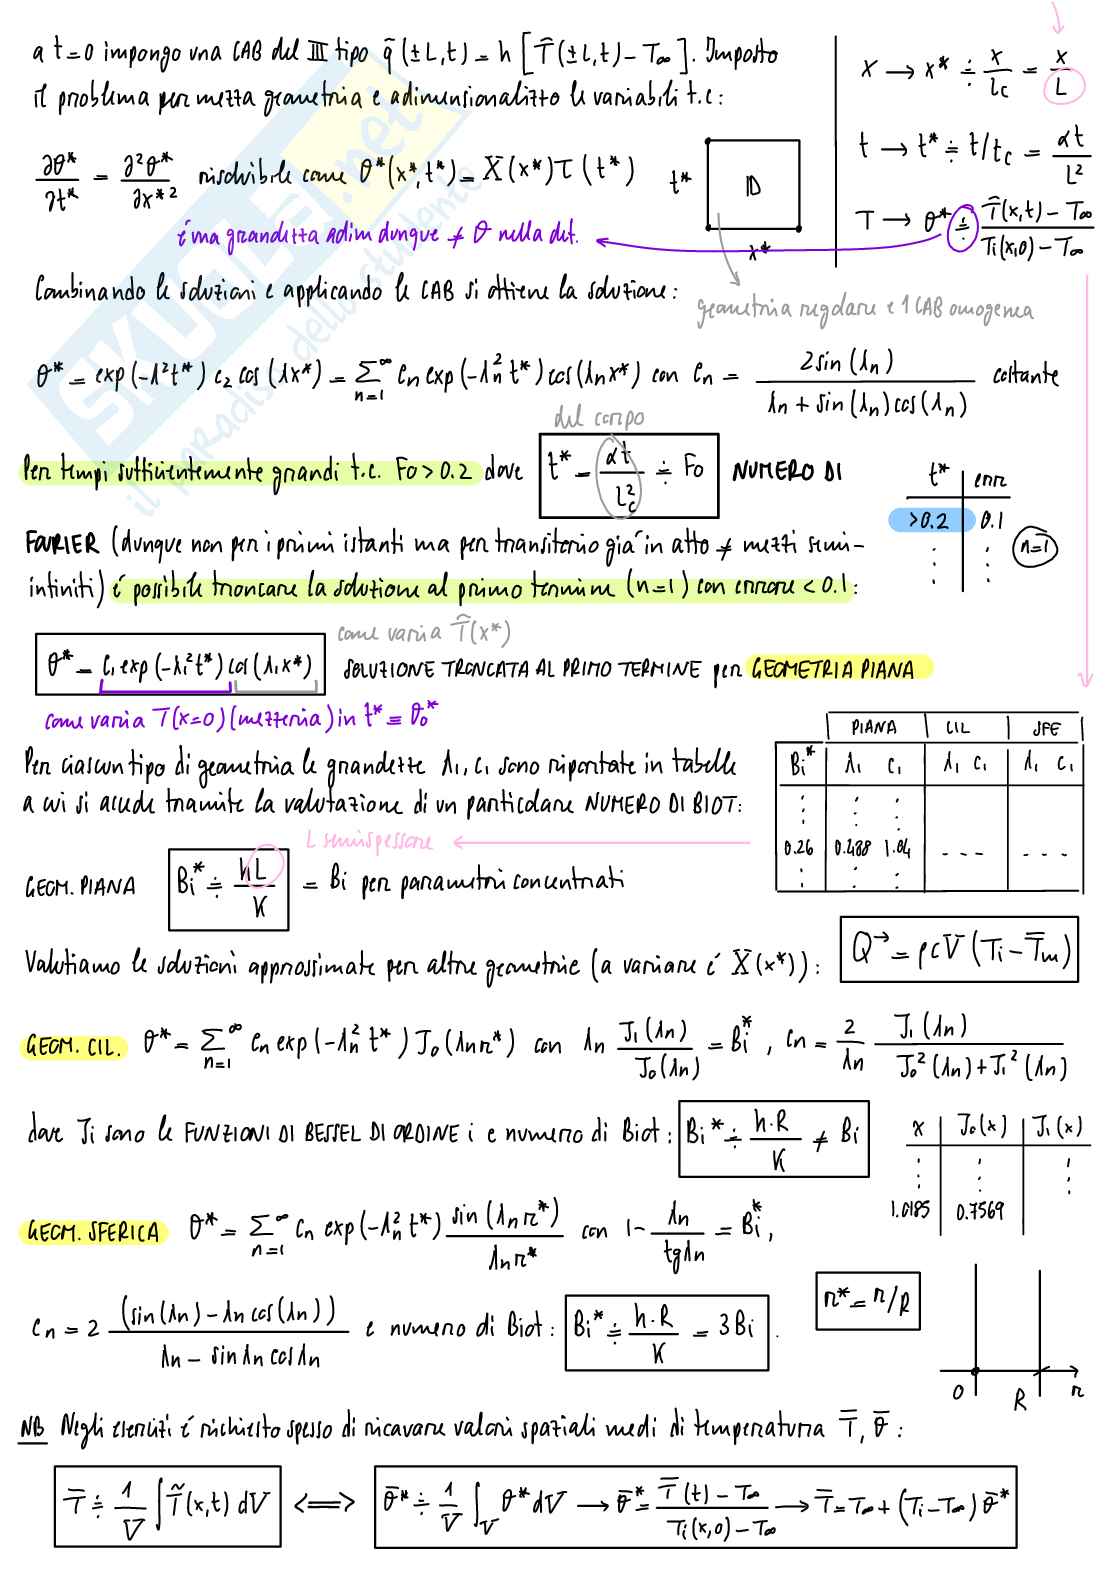 a t=0 impongo una CAB del III tipo q̃(±L,t) = h [T̃(±L,t) - T∞]. Imposto
il problema per mezza geometria e adimensionalizzo le variabili t.c:
x → x* ≐ x/lc = x/L
t → t* ≐ t/tc = αt/L²
T → θ* ≐ (T̃(x,t) - T∞)/(Ti(x,0) - T∞)
∂θ*/∂t* = ∂²θ*/∂x*² risolvibile come θ*(x*,t*) = X(x*)τ(t*)
t* 1D
x*
è una grandezza adim dunque ≠ θ nella dut.
geometria regolare e 1 CAB omogenea
Combinando le soluzioni e applicando le CAB si ottiene la soluzione:
θ* = exp(-λ²t*) c₂ cos(λx*) = Σ n=1 ∞ cn exp(-λn² t*) cos(λn x*) con cn = 2 sin(λn)/(λn + sin(λn)cos(λn)) costante
del corpo
Per tempi sufficientemente grandi t.c. Fo > 0.2 dove t* = αt/lc² ≐ Fo NUMERO DI
FOURIER (dunque non per i primi istanti ma per transitorio già in atto ≠ mezzi semi-
infiniti) è possibile troncare la soluzione al primo termine (n=1) con errore < 0.1:
t* err
>0.2 0.1 n=1
come varia T̃(x*)
θ* = C₁ exp(-λ₁² t*) cos(λ₁x*) SOLUZIONE TRONCATA AL PRIMO TERMINE per GEOMETRIA PIANA
come varia T(x=0) (mezzeria) in t* ≡ θ₀*
Per ciascun tipo di geometria le grandezze λ₁, c₁ sono riportate in tabelle
a cui si accede tramite la valutazione di un particolare NUMERO DI BIOT:
PIANA CIL SFE
Bi* λ₁ c₁ λ₁ c₁ λ₁ c₁
0.26 0.488 1.04 - - - - - -
L semispessore
GEOM. PIANA Bi* ≐ hL/K = Bi per parametri concentrati
Q→ = ρcV (Ti - T̿m)
Valutiamo le soluzioni approssimate per altre geometrie (a variare è X(x*)):
GEOM. CIL. θ* = Σ n=1 ∞ cn exp(-λn² t*) J₀(λn r*) con λn J₁(λn)/J₀(λn) = Bi*, cn = 2/λn J₁(λn)/(J₀²(λn) + J₁²(λn))
dove Ji sono le FUNZIONI DI BESSEL DI ORDINE i e numero di Biot: Bi* ≐ h·R/K ≠ Bi
x J₀(x) J₁(x)
1.0185 0.7569
GEOM. SFERICA θ* = Σ n=1 ∞ cn exp(-λn² t*) sin(λn r*)/λn r* con 1 - λn/tgλn = Bi*,
cn = 2 (sin(λn) - λn cos(λn))/(λn - sinλn cosλn) e numero di Biot: Bi* ≐ h·R/K = 3Bi.
r* = r/R
0 R r
NB Negli esercizi è richiesto spesso di ricavare valori spaziali medi di temperatura T̿, θ̄:
T̿ ≐ 1/V ∫ T̃(x,t) dV <=> θ̄* ≐ 1/V ∫V θ* dV → θ̄* = (T̿(t) - T∞)/(Ti(x,0) - T∞) → T̿ = T∞ + (Ti - T∞) θ̄*
SKUOLA.net
il paradiso dello studente